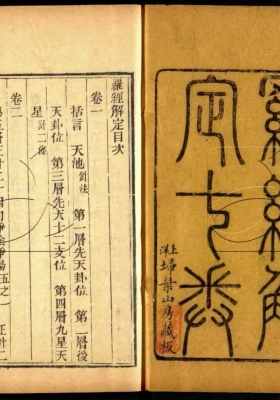 羅經解
定七卷
上海埽葉山房藏板
羅經解定目次
卷一
括言 天池針法 第一層先天卦位 第二層後
天卦位 第三層先天十二支位 第四層九星天
星計二條
卷二